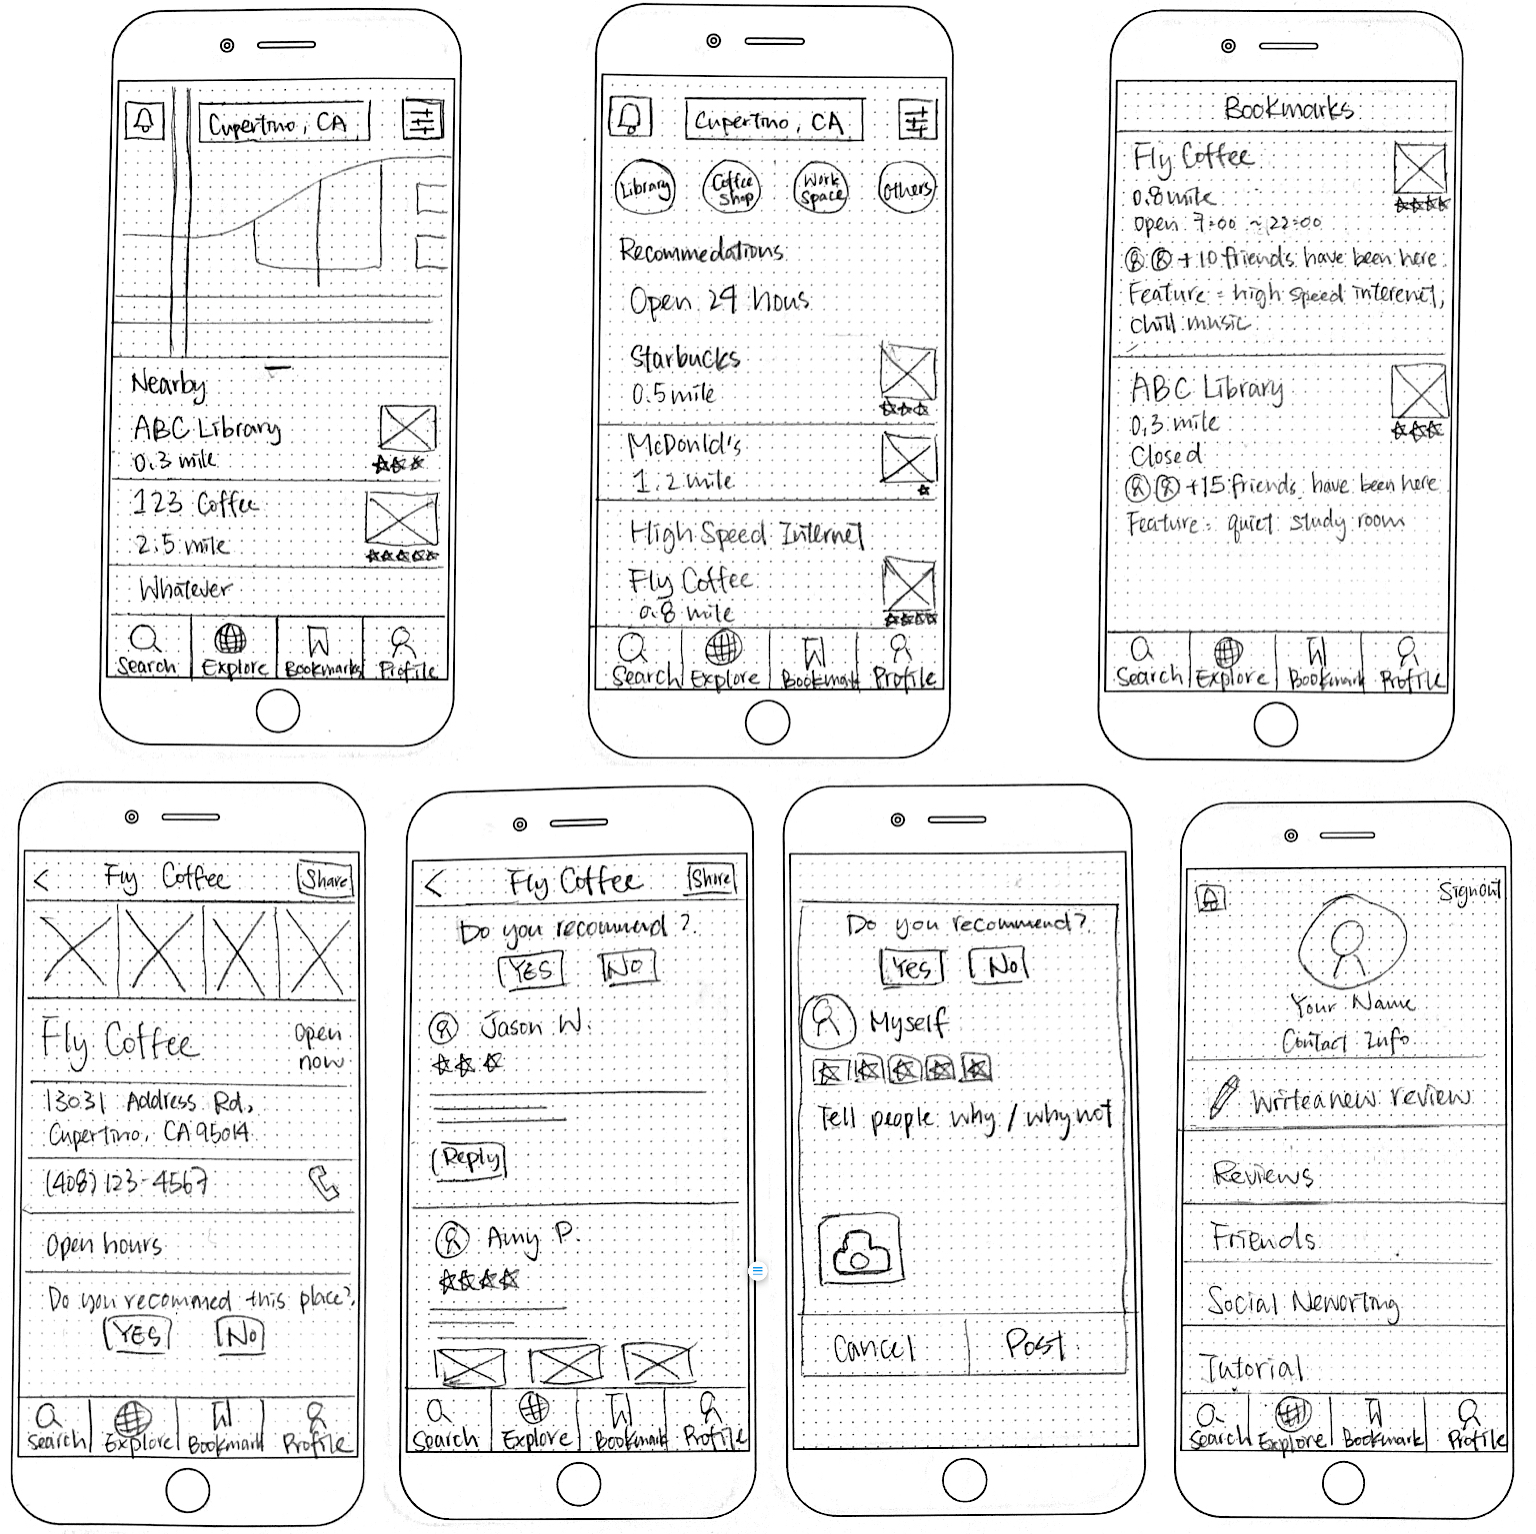 Cupertino, CA
Nearby
ABC Library
0.3 mile
123 Coffee
2.5 mile
Whatever
Search Explore Bookmarks Profile
Cupertino, CA
Library Coffee Shop Work Space Others
Recommedations
Open 24 hous
Starbucks
0.5 mile
McDonld's
1.2 mile
High Speed Internet
Fly Coffee
0.8 mile
Search Explore Bookmark Profile
Bookmarks
Fly Coffee
0.8 mile
Open 7:00 ~ 22:00
+10 friends have been here
Feature: high speed interenet,
chill music
ABC Library
0.3 mile
Closed
+15 friends have been here
Feature: quiet study room
Search Explore Bookmark Profile
< Fly Coffee Share
Fly Coffee
open now
13031 Address Rd,
Cupertino, CA 95014
(408) 123-4567
Open hours
Do you recommed this place?
YES No
Search Explore Bookmark Profile
< Fly Coffee Share
Do you recommend?
YES No
Jason W.
Reply
Amy P.
Search Explore Bookmark Profile
Do you recommend?
Yes No
Myself
Tell people why / why not
Cancel Post
Sign out
Your Name
Contact Info
Write a new review
Reviews
Friends
Social Neworting
Tutorial
Search Explore Bookmark Profile